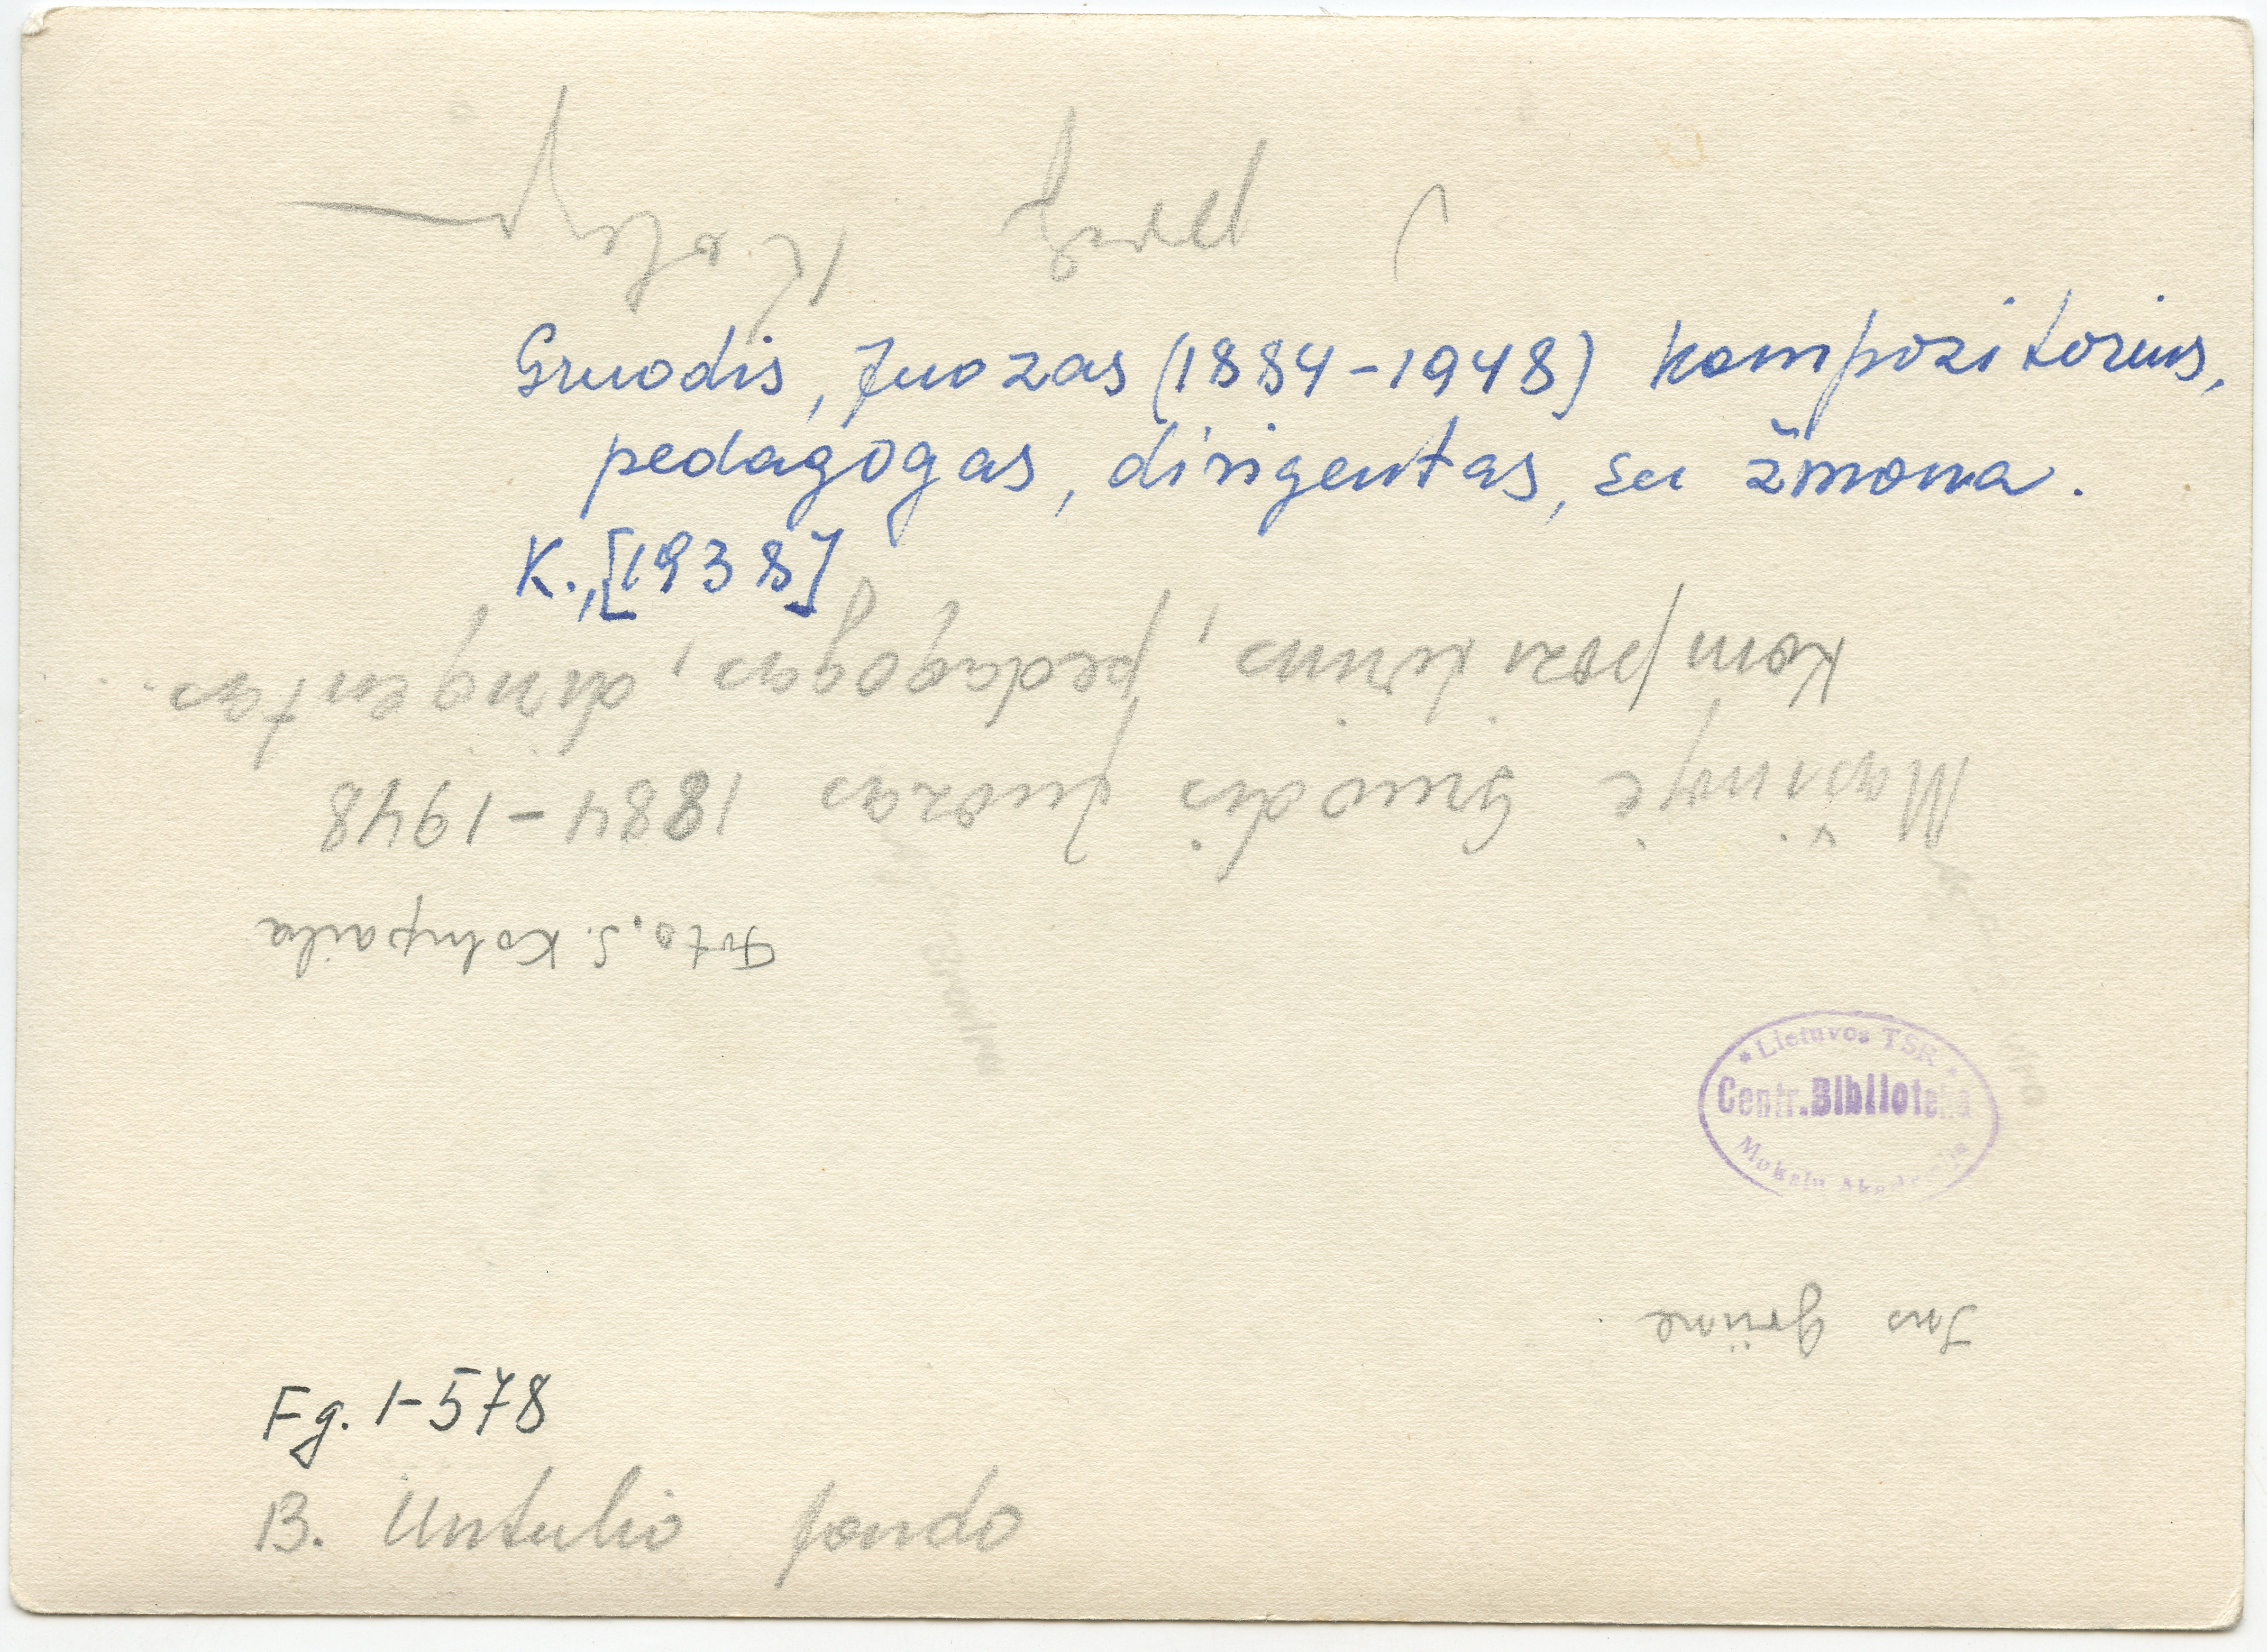 Gruodis, Juozas (1884-1948) kompozitorius,
pedagogas, dirigentas, su žmona.
K., [1938]
Foto, S. Kolupaila
Mašinoje Gruodis Juozas 1884-1948
kompozitorius, pedagogas, dirigentas
* Lietuvos TSR *
Centr. Biblioteka
Mokslų Akademija
Fg. 1-578
B. Untulio fondo